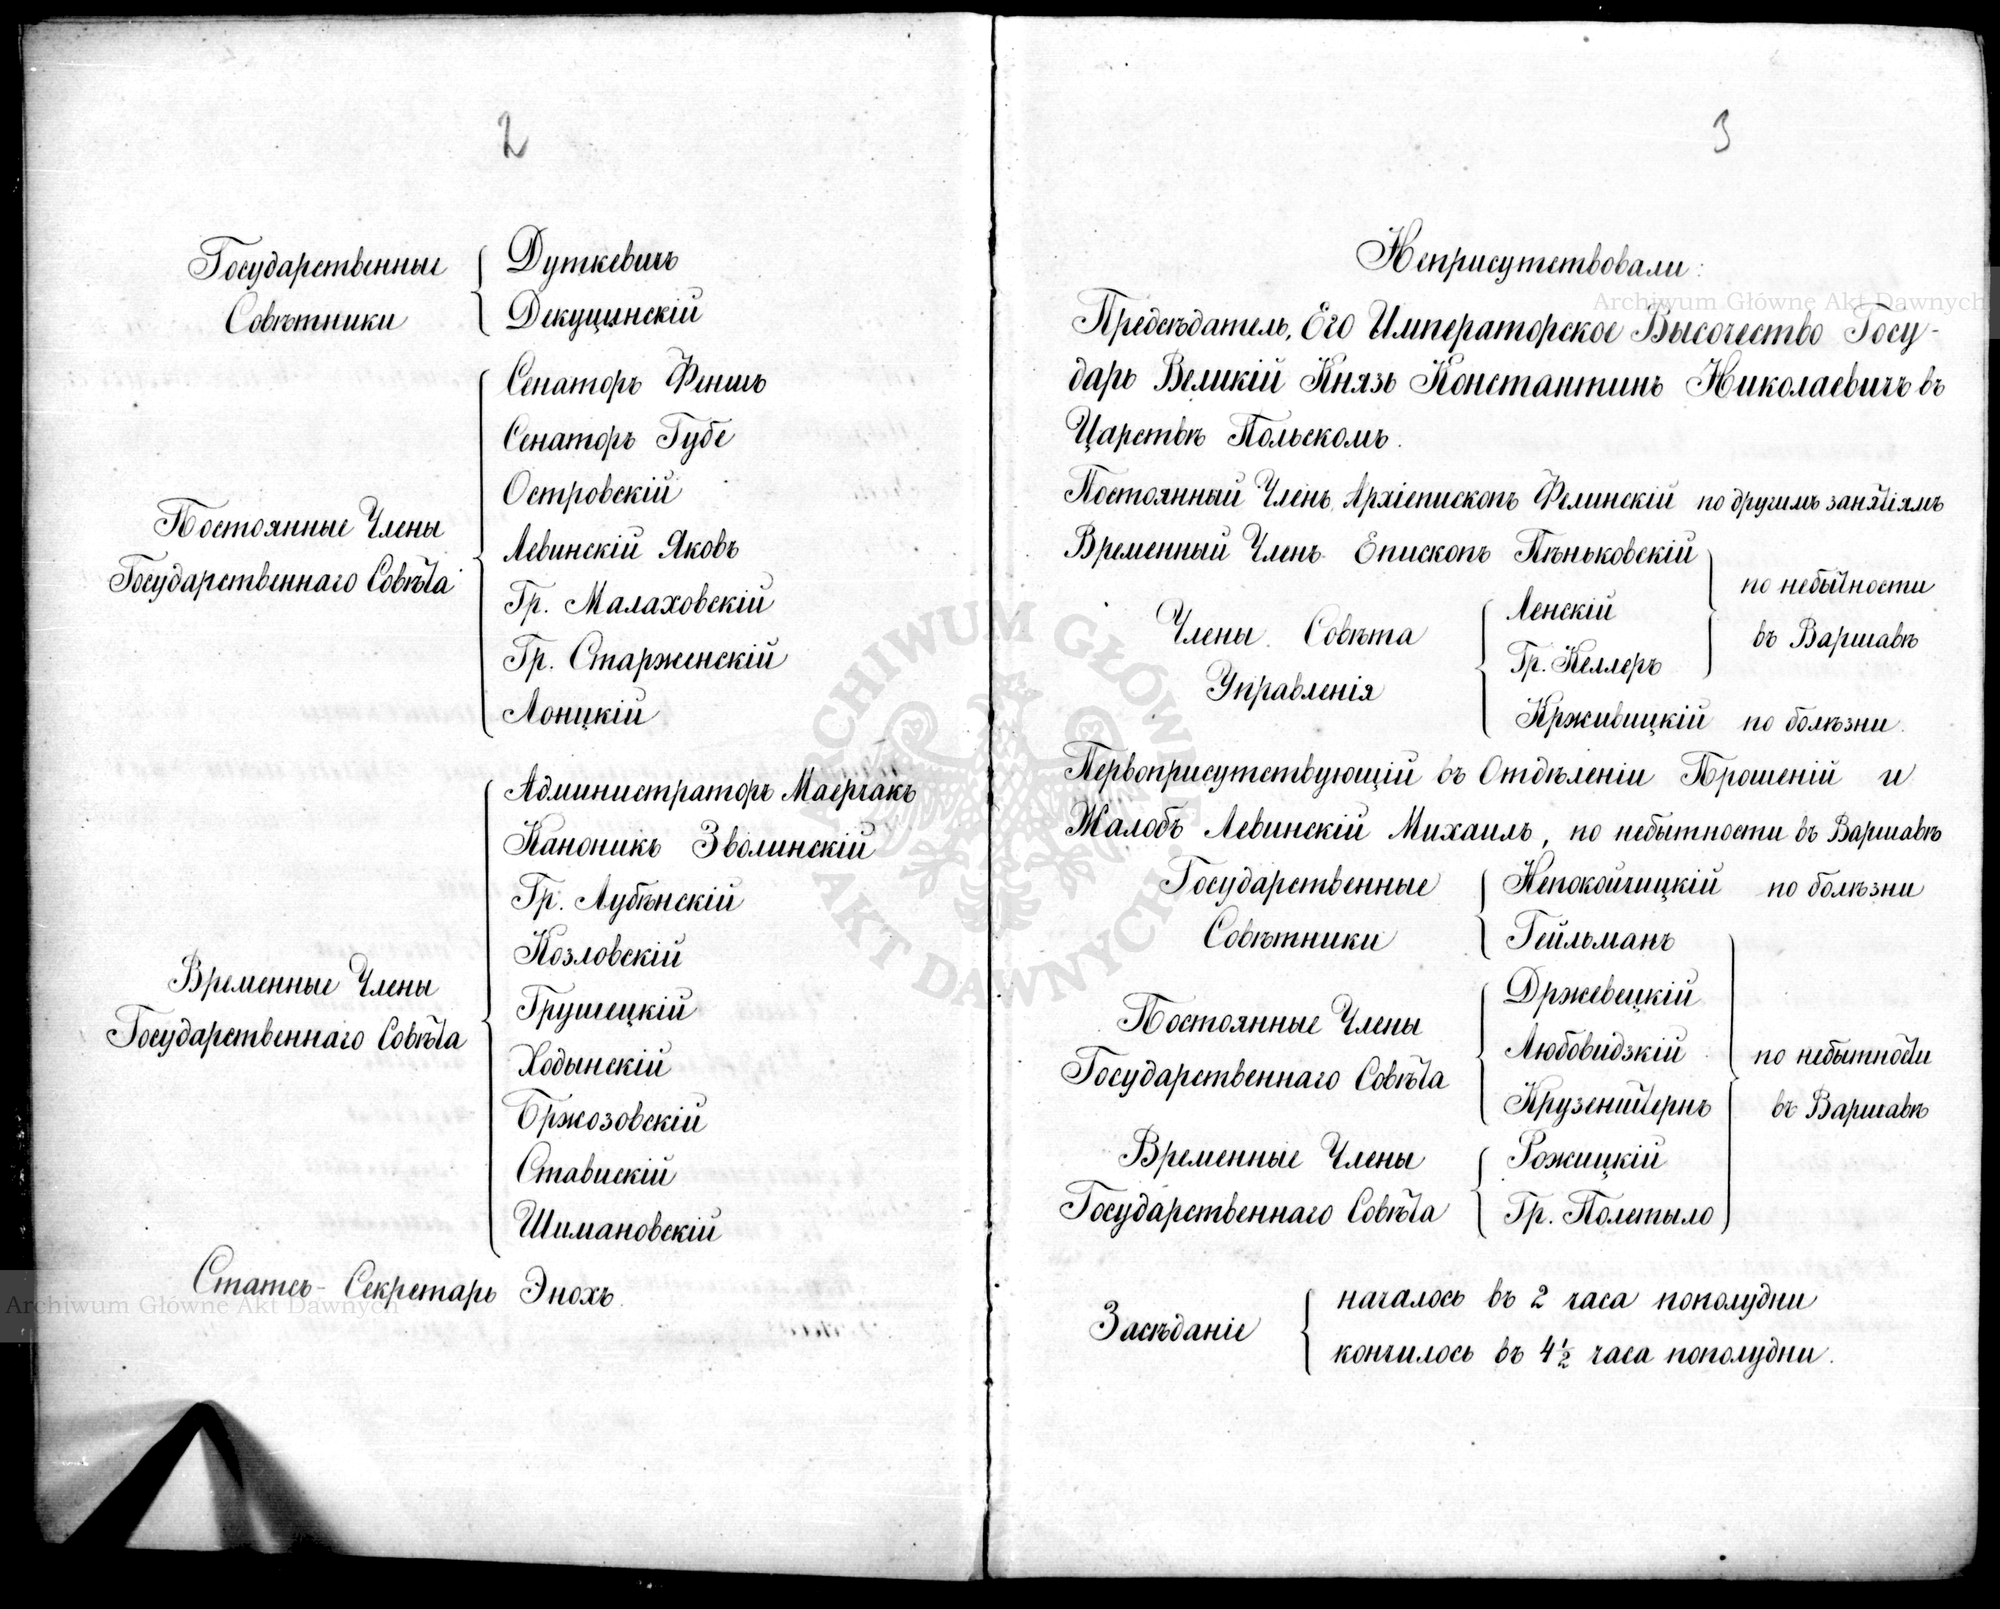 2
Государственные
Совѣтники
Дуткевичъ
Декуцинскій
Постоянные Члены
Государственнаго Совѣта
Сенаторъ Феншъ
Сенаторъ Губе
Островскій
Левинскій Яковъ
Гр. Малаховскій
Гр. Старженскій
Лонцкій
Временные Члены
Государственнаго Совѣта
Администраторъ Маерчакъ
Каноникъ Зволинскій
Гр. Лубѣнскій
Козловскій
Грушецкій
Ходынскій
Бржозовскій
Стависскій
Шимановскій
Статсъ-Секретарь Энохъ.
3
Неприсутствовали:
Предсѣдатель, Его Императорское Высочество Госу-
дарь Великій Князь Константинъ Николаевичъ въ
Царствѣ Польскомъ.
Постоянный Членъ, Архіепископъ Фелинскій по другимъ занятіямъ
Временный Членъ Епископъ Пѣньковскій
Члены Совѣта
Управленія
Ленскій
Гр. Келлеръ
по небытности
въ Варшавѣ
Крживицкій по болѣзни.
Первоприсутствующій въ Отдѣленіи Прошеній и
Жалобъ Левинскій Михаилъ, по небытности въ Варшавѣ
Государственные
Совѣтники
Непокойчицкій по болѣзни
Гейльманъ
Постоянные Члены
Государственнаго Совѣта
Држевецкій
Любовидзкій
Крузенштернъ
по небытности
въ Варшавѣ
Временные Члены
Государственнаго Совѣта
Рожицкій
Гр. Полетыло
Засѣданіе
началось въ 2 часа пополудни
кончилось въ 4½ часа пополудни.
Archiwum Główne Akt Dawnych
Archiwum Główne Akt Dawnych
ARCHIWUM GŁÓWNE AKT DAWNYCH